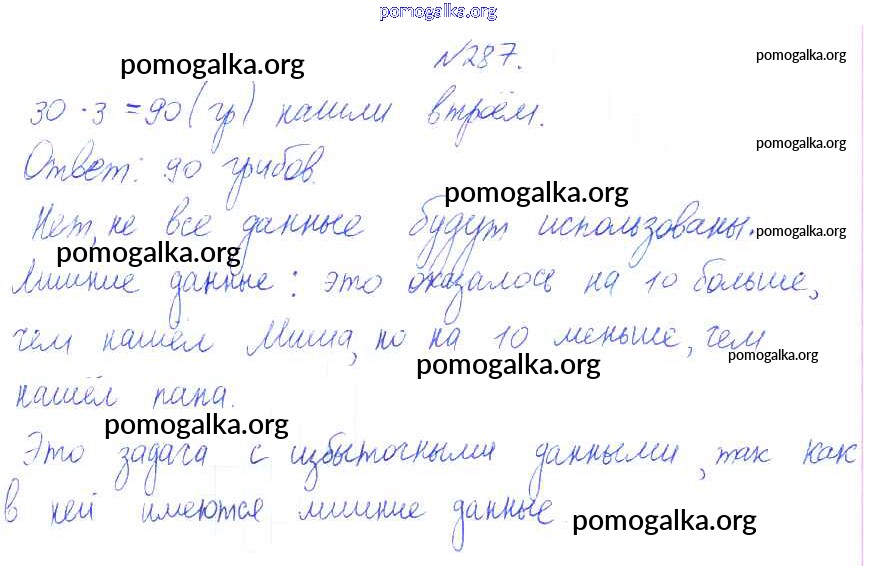 pomogalka.org
№287.
pomogalka.org
pomogalka.org
30 · 3 = 90 (гр) нашли втроём.
pomogalka.org
Ответ: 90 грибов.
pomogalka.org
Нет, не все данные будут использованы.
pomogalka.org
pomogalka.org
Лишние данные: это оказалось на 10 больше,
чем нашёл Миша, но на 10 меньше, чем
pomogalka.org
pomogalka.org
нашёл папа.
pomogalka.org
Это задача с избыточными данными, так как
в ней имеются лишние данные
pomogalka.org